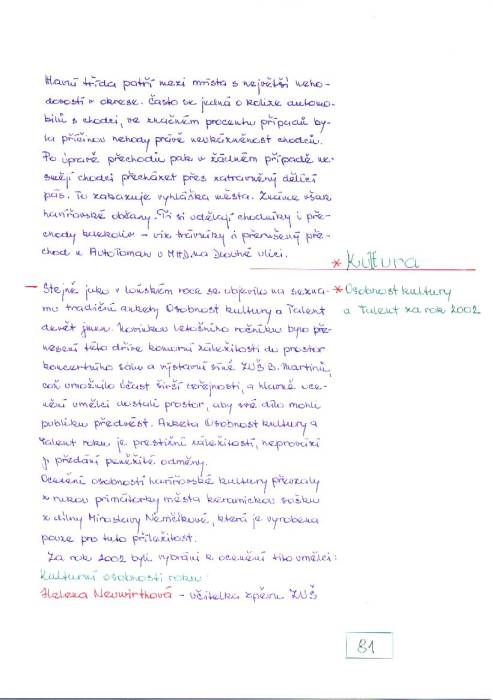 Hlavní třída patří mezi místa s největší neho-
dovostí v okrese. Často se jedná o kolize automo-
bilů s chodci, ve značném procentu případů by-
la příčinou nehody právě neukázněnost chodců.
Po úpravě přechodů pak v žádném případě ne-
smějí chodci přecházet přes zatravněný dělící
pás. To zakazuje vyhláška města. Známe však
havířovské občany. Ti si udělají chodníky i pře-
chody kdekoliv – viz trávníky i přerušený pře-
chod u Autotomanu v MHD na Dlouhé ulici.
* Kultura
Stejně jako v loňském roce se objevilo na sezna-
mu tradiční ankety Osobnost kultury a Talent
devět jmen. Novinkou letošního ročníku bylo pře-
nesení této dříve komorní záležitosti do prostor
koncertního sálu a výstavní síně ZUŠ B. Martinů,
což umožnilo účast širší veřejnosti, a hlavně oce-
nění umělci dostali prostor, aby své dílo mohli
publiku předvést. Anketa Osobnost kultury a
Talent roku je prestižní záležitostí, neprovází
ji předání peněžité odměny.
Ocenění osobností havířovské kultury převzaly
z rukou primátorky města keramickou sošku
z dílny Miroslavy Němčíkové, která je vyrobena
pouze pro tuto příležitost.
Za rok 2002 byli vybráni k ocenění tito umělci:
Kulturní osobnosti roku:
Helena Neuwirthová – učitelka zpěvu ZUŠ
* Osobnost kultury
a Talent za rok 2002
81